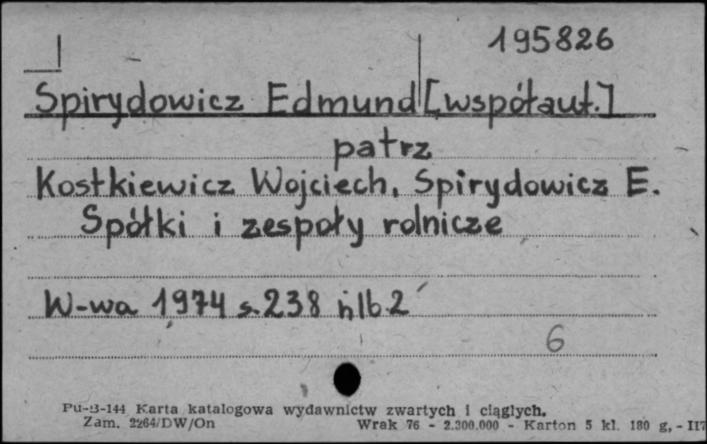 195826
Spirydowicz Edmund [współaut.]
patrz
Kostkiewicz Wojciech, Spirydowicz E.
Spółki i zespoły rolnicze
W-wa 1974 s. 238 nlb 2
6
Pu-B-144 Karta katalogowa wydawnictw zwartych i ciągłych.
Zam. 2264/DW/On Wrak 76 - 2.300.000 - Karton 5 kl. 180 g, - II7